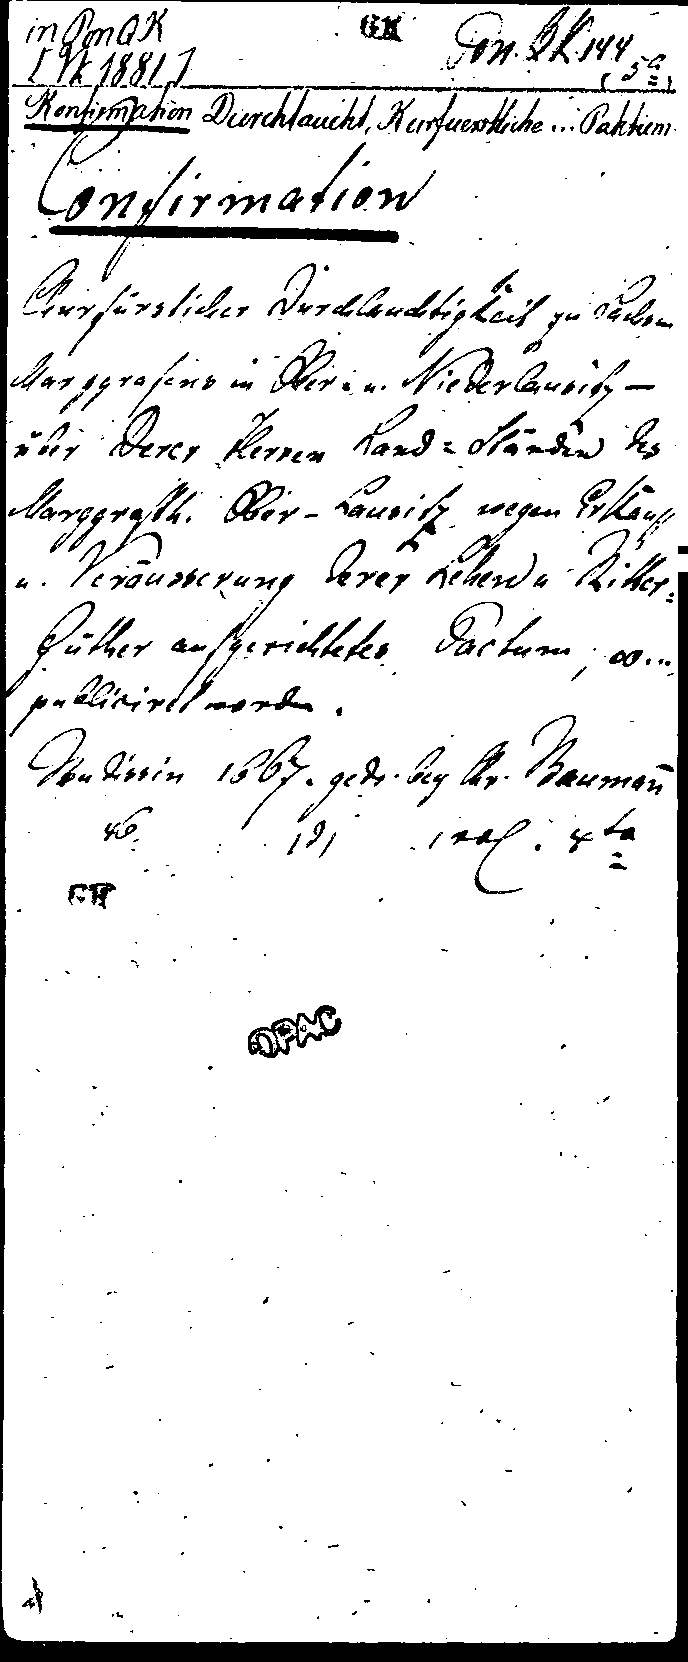 in Pon QK GK Pon. QK. 144
[Vk 1881] (5a)
Konfirmation Durchlaucht, Kurfuerstliche ... Paktum
Confirmation
Churfürstlicher Durchlauchtigkeit zu Sachsen
Marggrafens in Ober- u. Niederlausitz -
über Derer Herren Land=Ständen des
Marggrafth. Ober-Lausitz wegen Erkauff
u. Veräusserung derer Lehen u Ritter=
Güther aufgerichtetes Pactum,
publiciret worden.
Budissin 1667. gedr. bey Chr. Baumañ
4ta
GK
OPAC